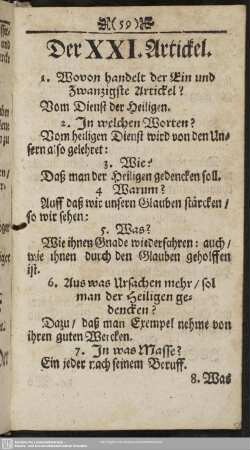 (59)
Der XXI. Artickel.
1. Wovon handelt der Ein und
Zwanzigste Artickel?
Vom Dienst der Heiligen.
2. In welchen Worten?
Vom heiligen Dienst wird von den Un-
sern also gelehret:
3. Wie?
Daß man der Heiligen gedencken soll.
4 Warum?
Auff daß wir unsern Glauben stärcken /
so wir sehen:
5. Was?
Wie ihnen Gnade wiederfahren: auch /
wie ihnen durch den Glauben geholffen
ist.
6. Aus was Ursachen mehr / sol
man der Heiligen ge-
dencken?
Dazu / daß man Exempel nehme von
ihren guten Wercken.
7. In was Masse?
Ein jeder nach seinem Beruff.
8. Was